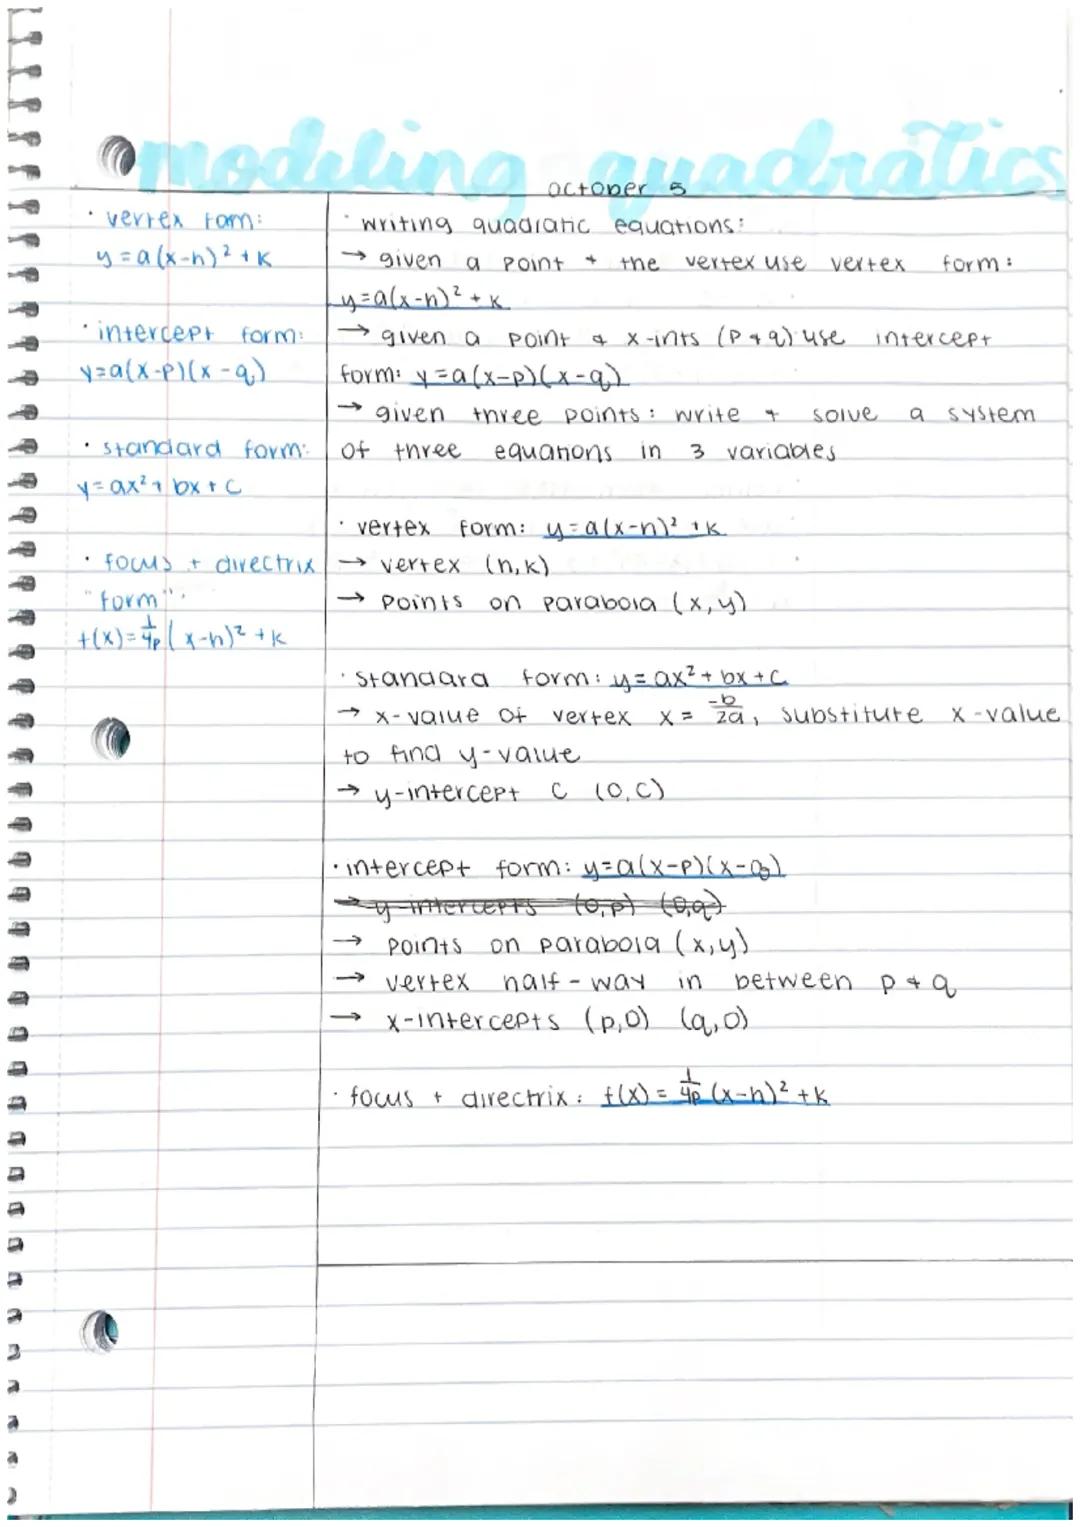 modeling quadratics
october 5
· vertex form:
y = a(x-h)² + k
· intercept form:
y=a(x-p)(x-q)
· standard form:
y=ax²+bx+c
· focus + directrix
"form":
f(x)=1/4p(x-h)²+k
· writing quadratic equations:
→ given a point + the vertex use vertex form:
y=a(x-h)²+k
→ given a point & x-ints (p+q) use intercept
form: y=a(x-p)(x-q)
→ given three points: write + solve a system
of three equations in 3 variables
· vertex form: y=a(x-h)²+k
→ vertex (h,k)
→ points on parabola (x,y)
· standard form: y=ax²+bx+c
→ x-value of vertex x = -b/2a, substitute x-value
to find y-value
→ y-intercept c (0,c)
· intercept form: y=a(x-p)(x-q)
→ y-intercepts (0,p) (0,q)
→ points on parabola (x,y)
→ vertex half-way in between p+q
→ x-intercepts (p,0) (q,0)
· focus + directrix: f(x) = 1/4p (x-h)² + k